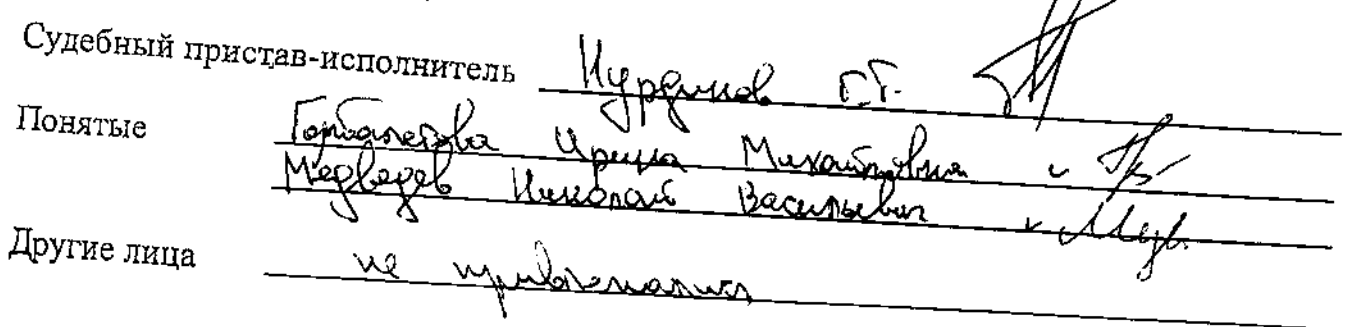 Судебный пристав-исполнитель Нурдинов Г.Г.
Понятые Ирина Михайловна
Медведев Николай Васильевич
Другие лица не привлекались